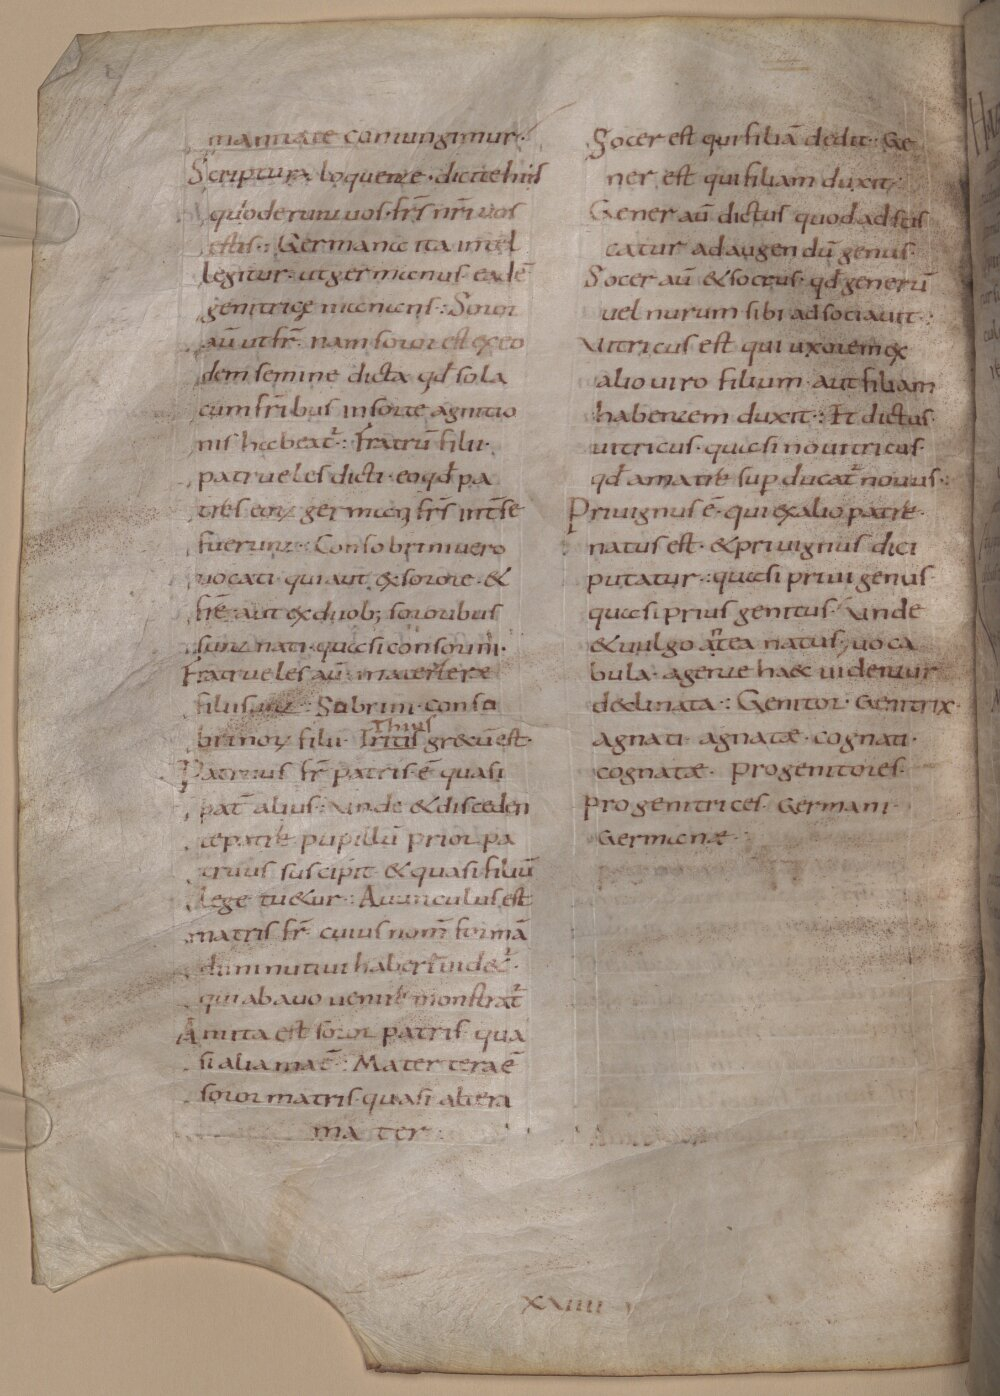 mannitate coniungimur·
Scriptura loquente· dicite his
quoderunt uos· frs nri uos
estis·: Germane ita intel
legitur· ut germanus eadē
genitrice manens·: Soror
aū ut fr̄· nam soror est ex eo
dem semine dicta qđ sola
cum frībus in sorte agnitio
nis habeat᷑·: Fratrū filii·
patrueles dicti· eo qđ pa
tres eoꝝ germani frs int̄ se
fuerunt·: Consobrini uero
uocati· qui aut ex sorore· &
frē· aut ex duob; sororibus
sunt nati· quasi consorini·
Fratrueles aū· materterae
filii sunt·: Sobrini· conso
brinoꝝ filii· Tritis grecū est·
Thius
Patruus fr̄ patris· ē quasi
pat̄ alius·: Unde & disceden
te patre pupillū prior pa
truus suscipit· & quasi filiū
lege tu&ur·: Auunculus est
matris fr̄· cuius nom̄ formā
diminutiui habere uidet᷑·
qui ab auo uenire monstrat᷑
Amita est soror patris· qua
si alia mat̄·: Matertera ē
soror matris· quasi altera
mater·
Socer est qui filiā dedit· Ge
ner est qui filiam duxit·
Gener aū dictus quod adscis
catur ad augendū genus·
Socer aū & socrus· qđ generū
uel nurum sibi adsociauit·:
Uitricus est qui uxorem ex
alio uiro filium· aut filiam
habentem duxit·: Et dictus
uitricus· quasi nouitricus·
qđ a matre sup ducat᷑ nouus·:
Priuignus ē· qui ex alio patre·
natus est· & priuignus dici
putatur·: quasi priui genus·
quasi prius genitus· Unde
& uulgo ātea natus· uoca
bula· agente haec uidentur
declinata·: Genitor· Genitrix·
agnati· agnatæ· cognati·
cognatæ· Progenitores·
Progenitrices· Germani·
Germanæ·:
XVIIII